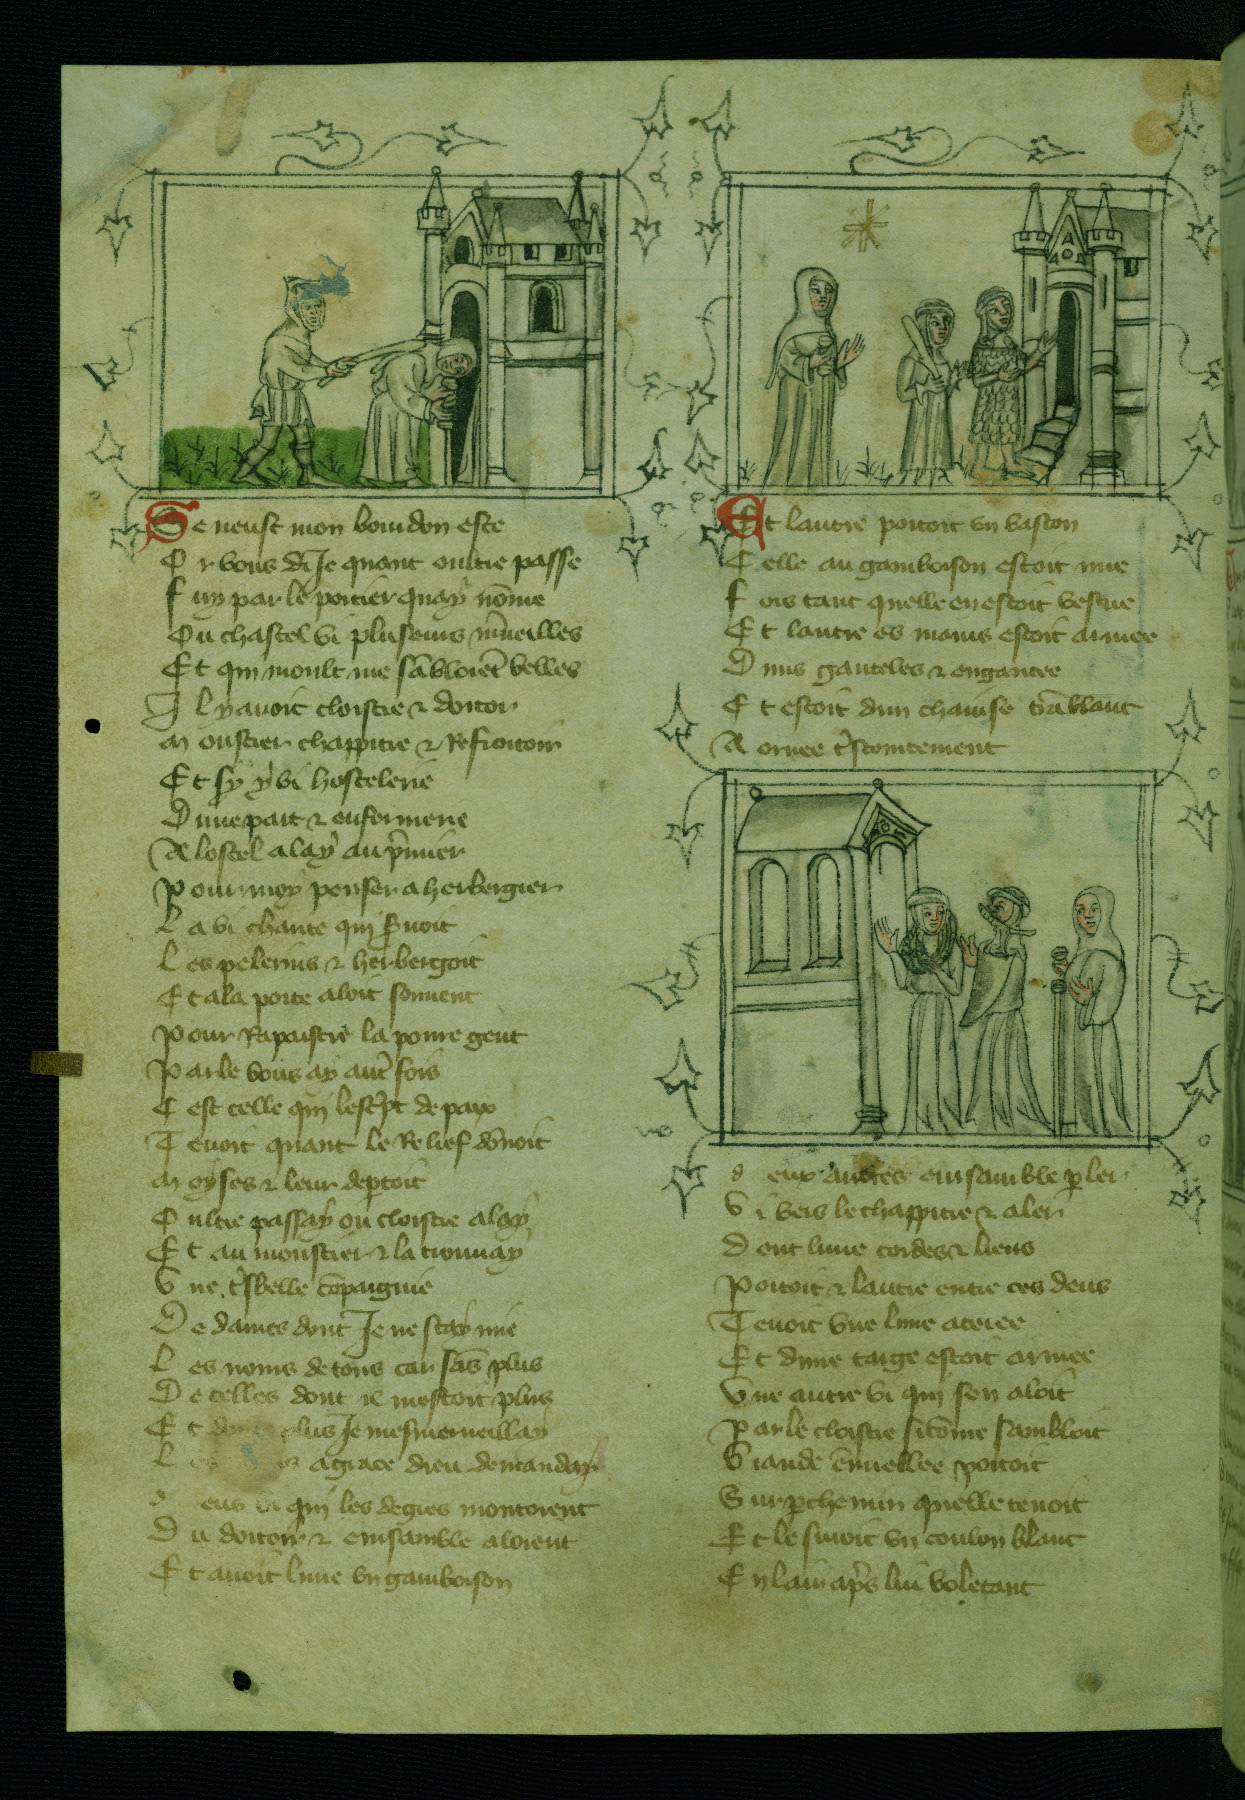 Se neust mon bourdon este
Or vous di Je quant oultre passe
Fuy par le portier quay nōme
Ou chastel vi pluseurs m̄ueilles
Et qui moult me sābloiēt belles
Il y auoit cloistre ⁊ doitor
Moustier chappitre ⁊ Refroitoir
Et sy y vi hostelerie
Dune part ⁊ enfermerie
A lostel alay au p̄mier
Pour moy penser a herbergier
La vi charite qui s̄uoit
Les pelerins ⁊ herbergoit
Et a la porte aloit souuent
Pour Rapaistre la poure gent
Parle vous ay aut̄ fois
Cest celle qui lesc̄pt de paix
Tenoit quant le Relief dōnoit
Moyses ⁊ leur dep̄toit
Oultre passay ou cloistre alay
Et au moustier ⁊ la trouuay
Vne t̄sbelle cōpaignie
De dames dont Je ne scay mie
Les noms de tous car sās plus
De celles dont il mestoit plus
Et plus Je mesmerueillay
L agrace dieu demanday
eus vi qui les degres montoient
Du doitour ⁊ ensamble aloient
Et auoit lune vn gamboison
Et lautre portoit vn baston
Celle au gamboison estoit nue
Fois tant quelle en estoit vestue
Et lautre es mains estoit armee
Dnus ganteles ⁊ engantee
Et estoit dun chainse trāblant
Aornee t̄scointement
eux autres ensamble p̄ler
Vi vers le chappitre ⁊ aler
Dont lune cordes ⁊ liens
Portoit ⁊ lautre entre ces dens
Tenoit vne lime aceree
Et dune targe estoit armee
Vne autre vi qui sen aloit
Par le cloistre sicōme sambloit
Viande ēmiellee portoit
Sur p̄chemin quelle tenoit
Et le siuoit vn coulon blanc
En lair ap̄s lui voletant